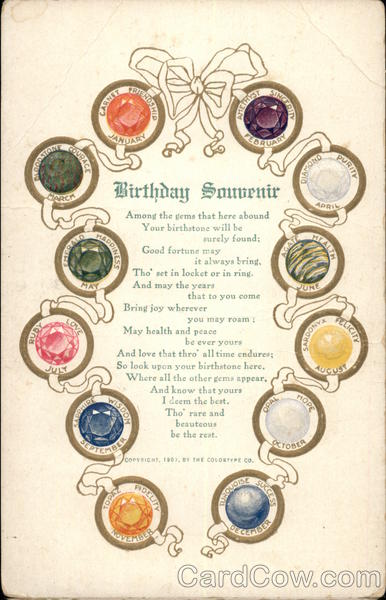 GARNET FRIENDSHIP
JANUARY
AMETHYST SINCERITY
FEBRUARY
BLOODSTONE COURAGE
MARCH
DIAMOND PURITY
APRIL
EMERALD HAPPINESS
MAY
AGATE HEALTH
JUNE
RUBY LOVE
JULY
SARDONYX FELICITY
AUGUST
SAPPHIRE WISDOM
SEPTEMBER
OPAL HOPE
OCTOBER
TOPAZ FIDELITY
NOVEMBER
TURQUOISE SUCCESS
DECEMBER
Birthday Souvenir
Among the gems that here abound
Your birthstone will be
surely found;
Good fortune may
it always bring,
Tho' set in locket or in ring.
And may the years
that to you come
Bring joy wherever
you may roam;
May health and peace
be ever yours
And love that thro' all time endures;
So look upon your birthstone here,
Where all the other gems appear,
And know that yours
I deem the best.
Tho' rare and
beauteous
be the rest.
COPYRIGHT, 1907, BY THE COLORTYPE CO.
CardCow.com